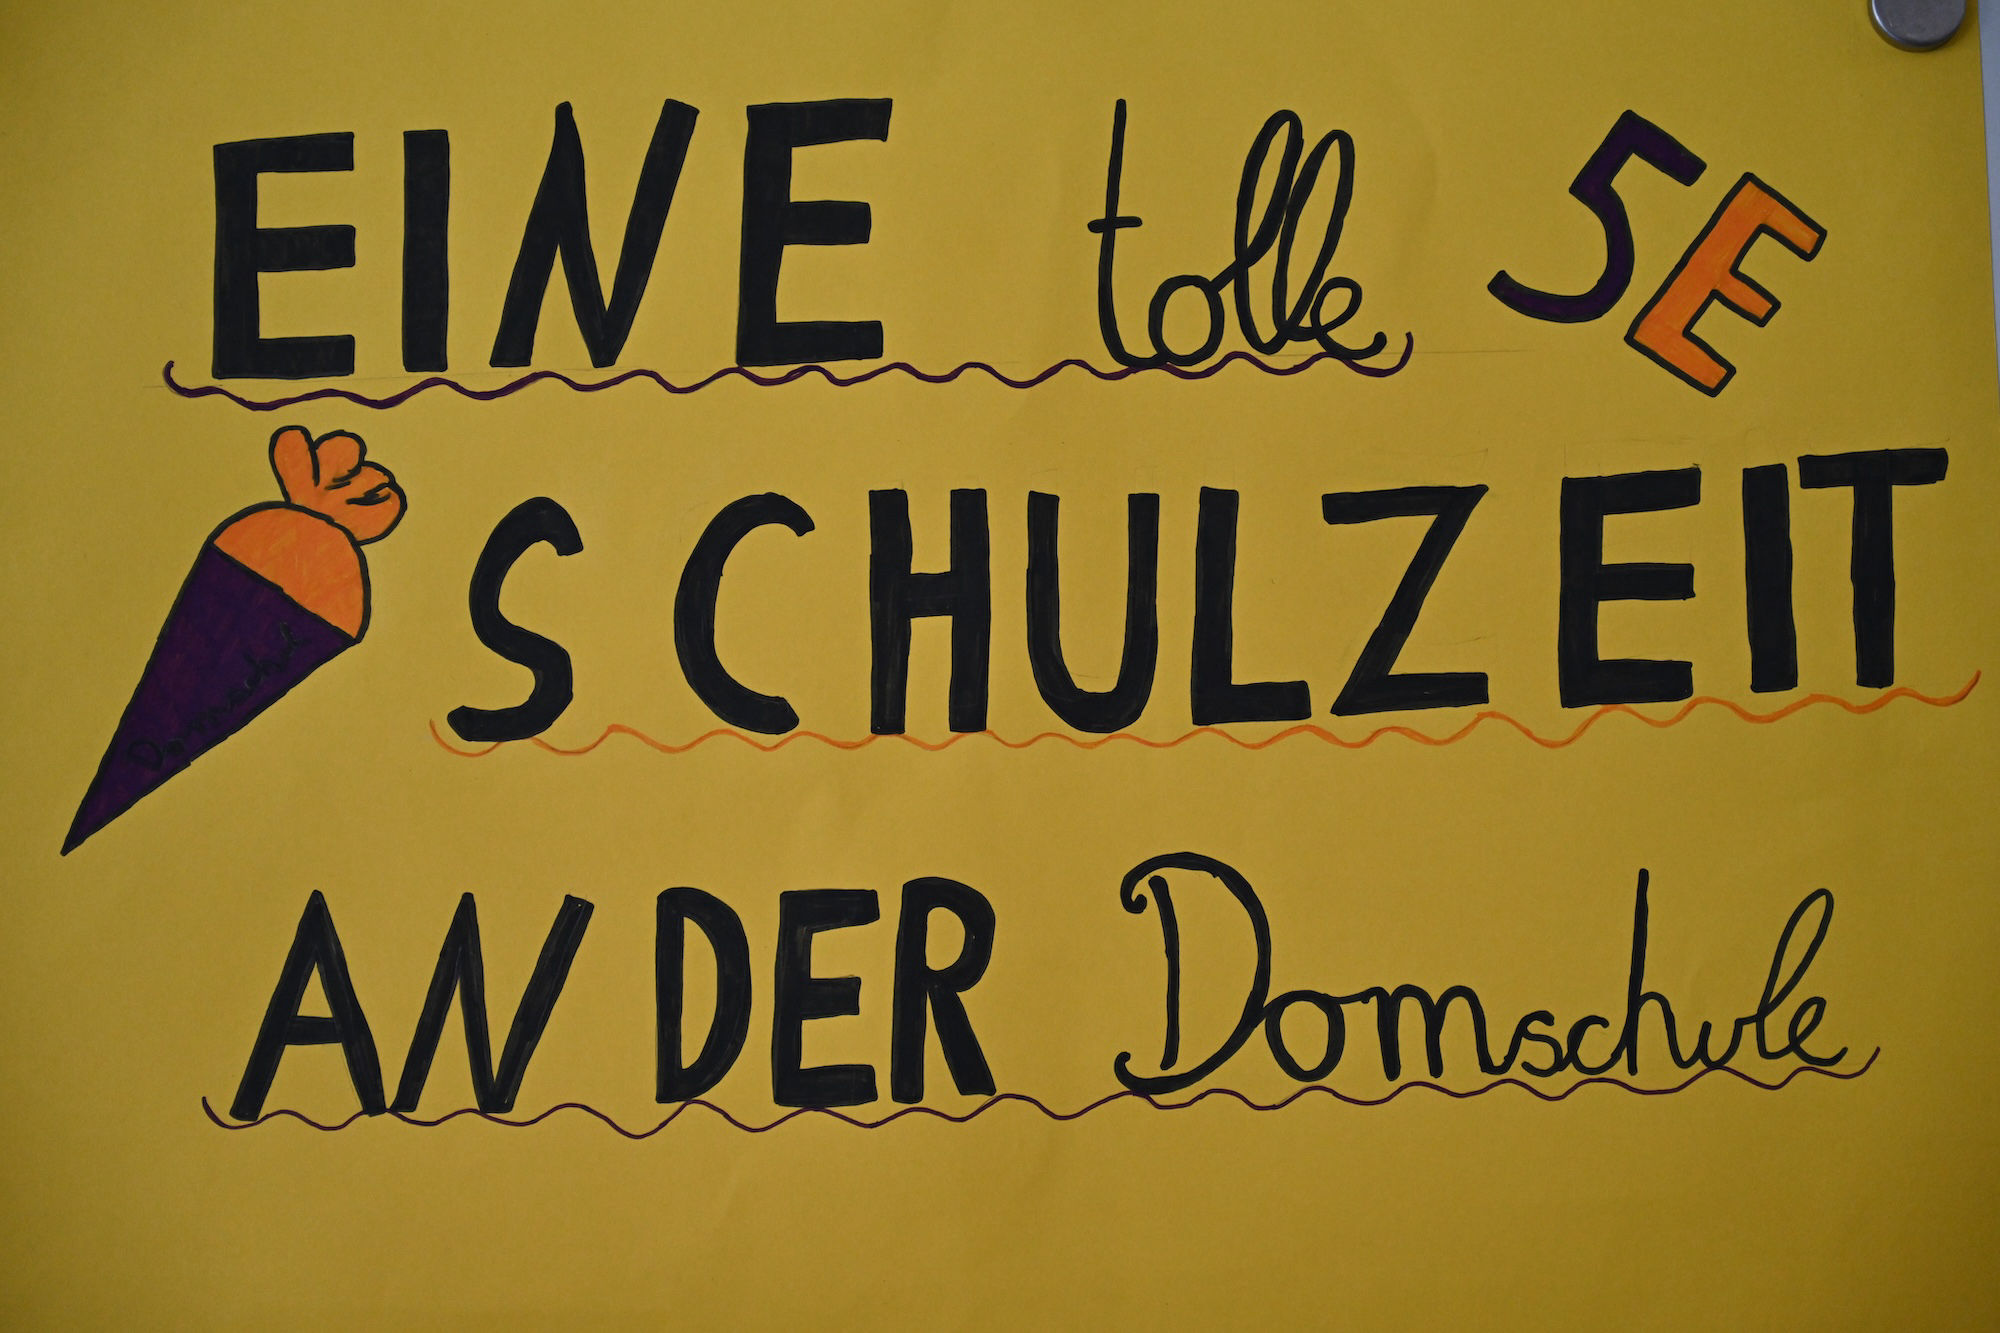 EINE tolle 5E
SCHULZEIT
Domschule
AN DER Domschule